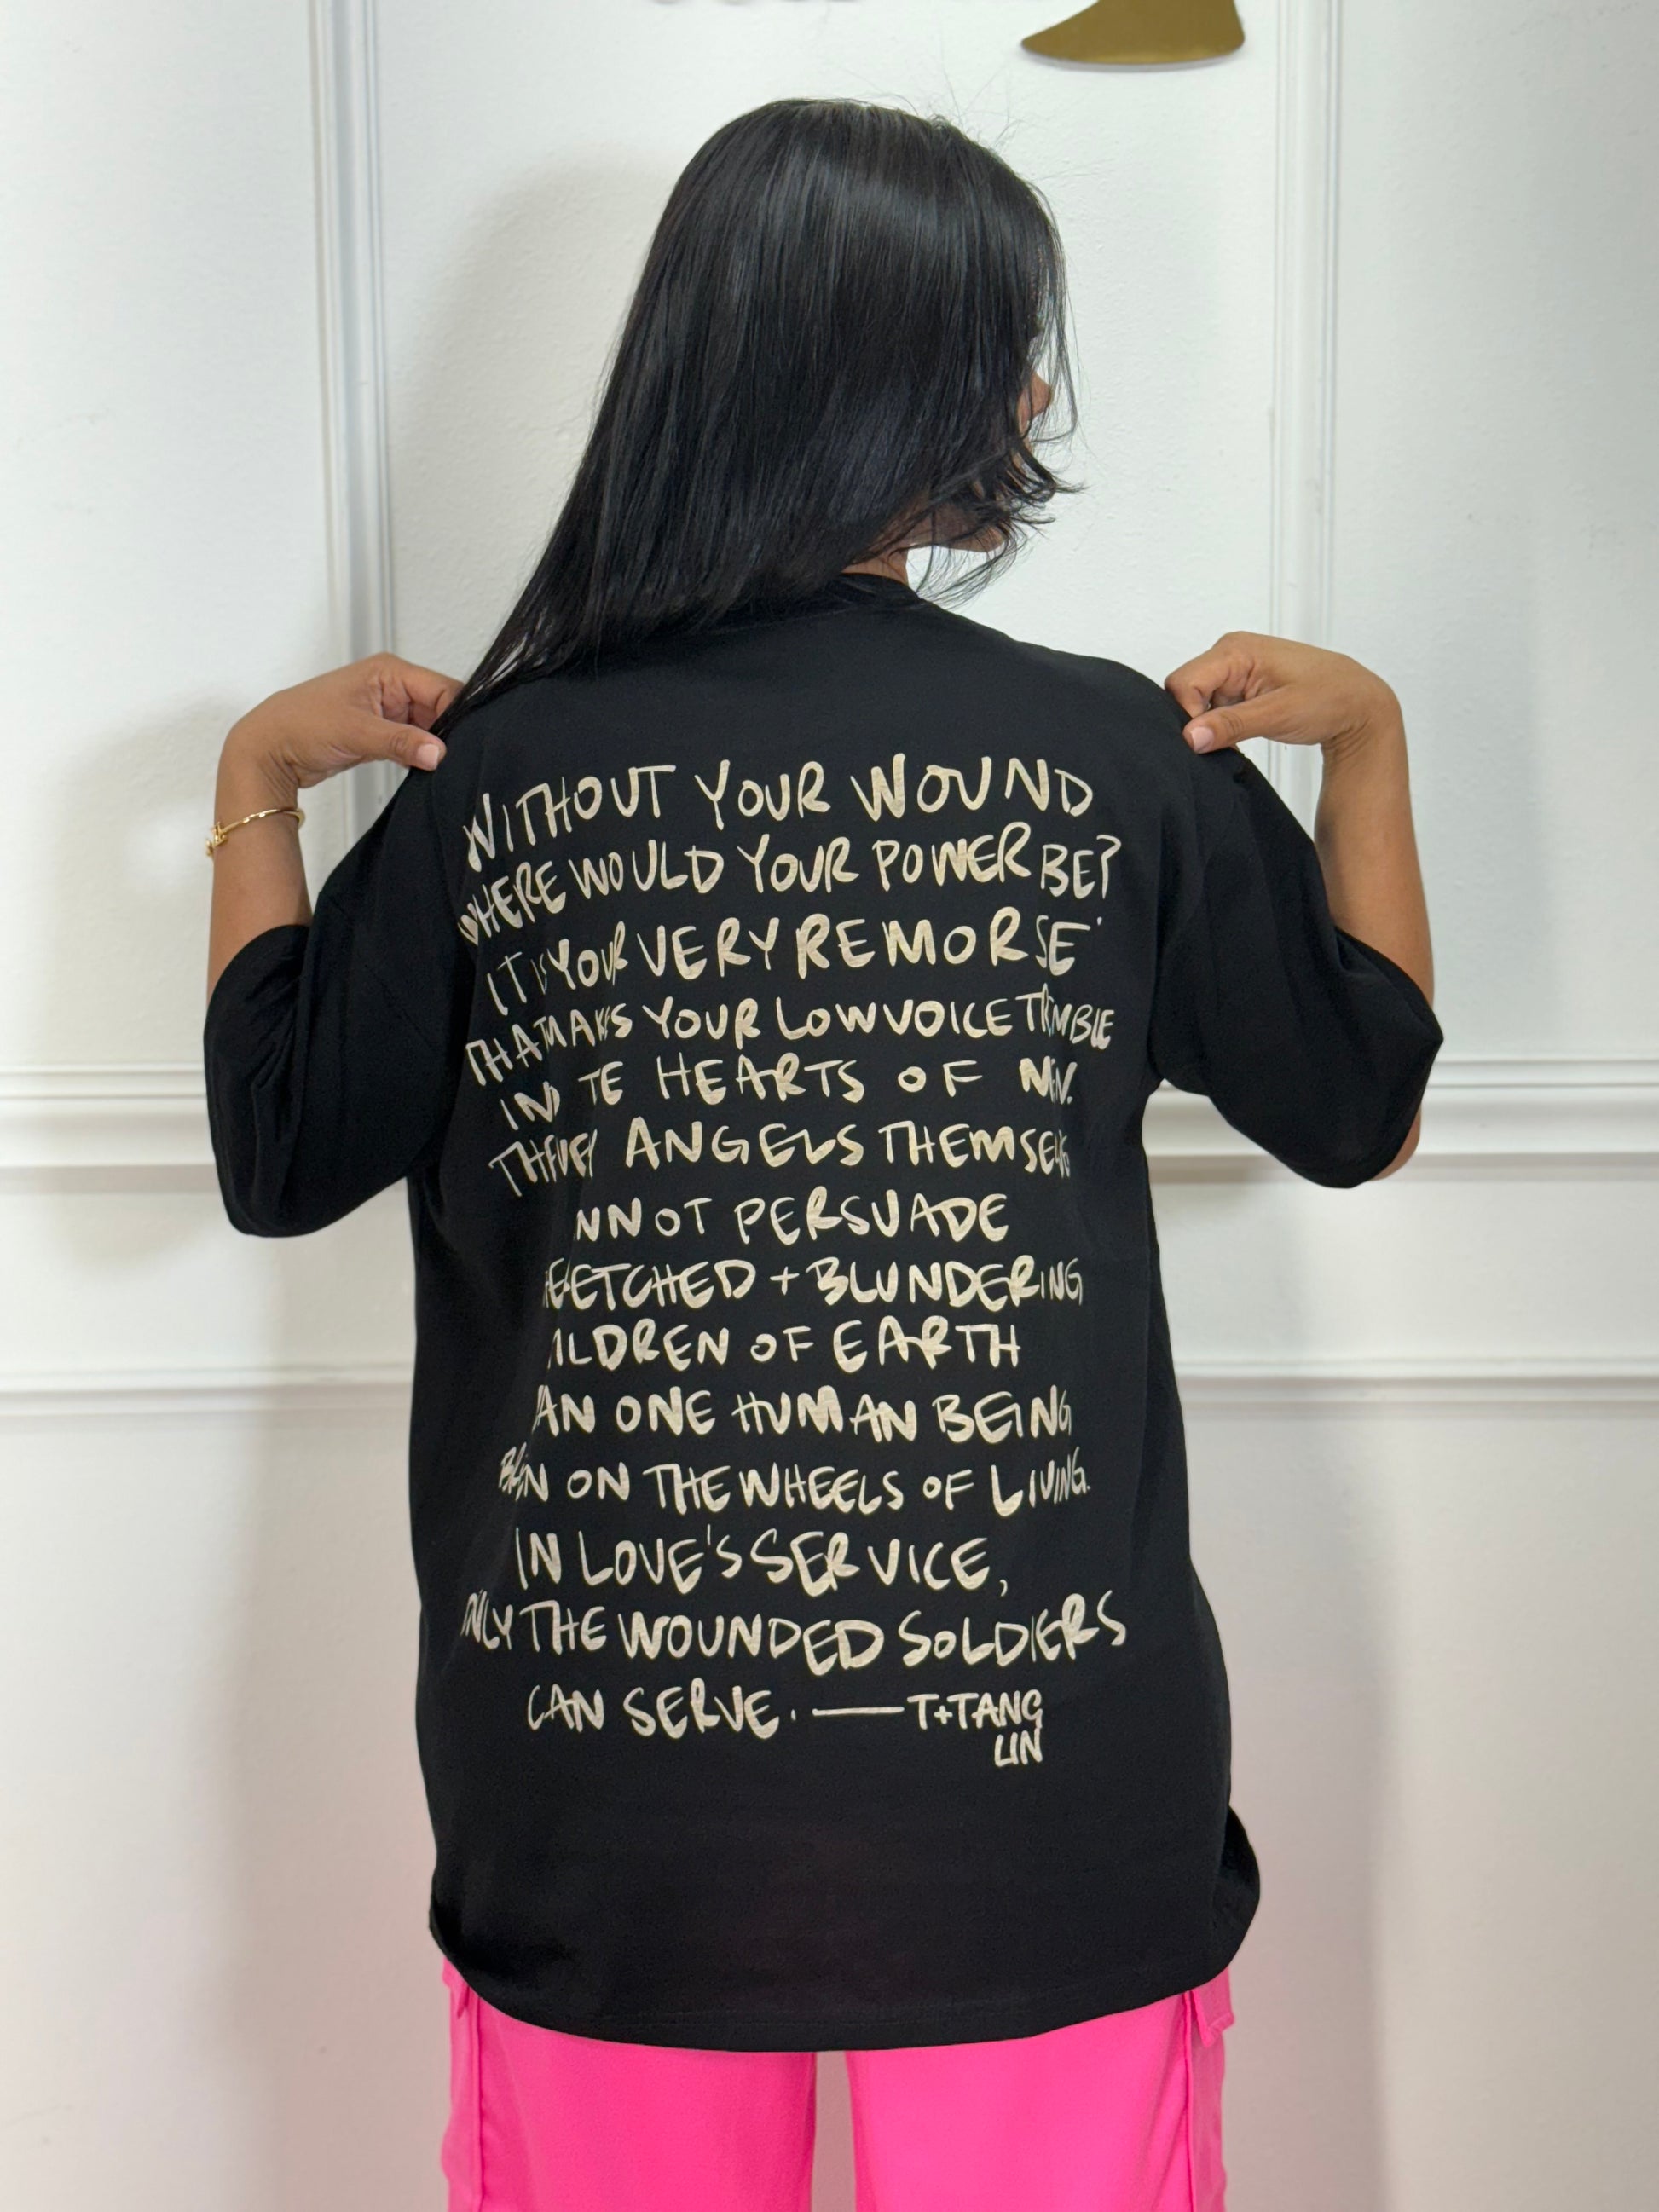 WITHOUT YOUR WOUND
WHERE WOULD YOUR POWER BE?
IT IS YOUR VERY REMORSE
THAT MAKES YOUR LOW VOICE TREMBLE
IN TE HEARTS OF MEN.
THE VERY ANGELS THEMSELVES
NNOT PERSUADE
ETCHED + BLUNDERING
ILDREN OF EARTH
AN ONE HUMAN BEING
ON THE WHEELS OF LIVING.
IN LOVE'S SERVICE,
ONLY THE WOUNDED SOLDIERS
CAN SERVE. — T+TANG
LIN